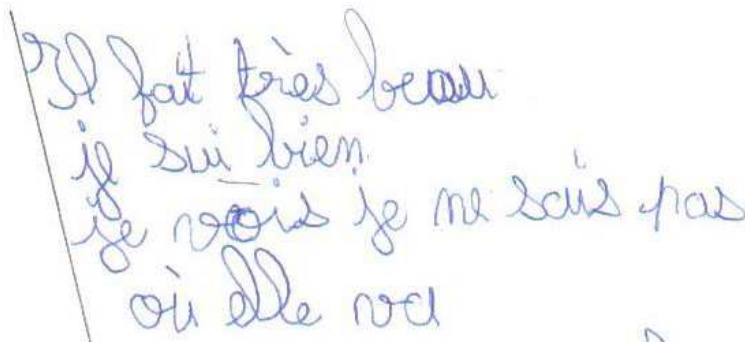 Il fait très beau
je sui bien
je vois je ne sais pas
où elle va